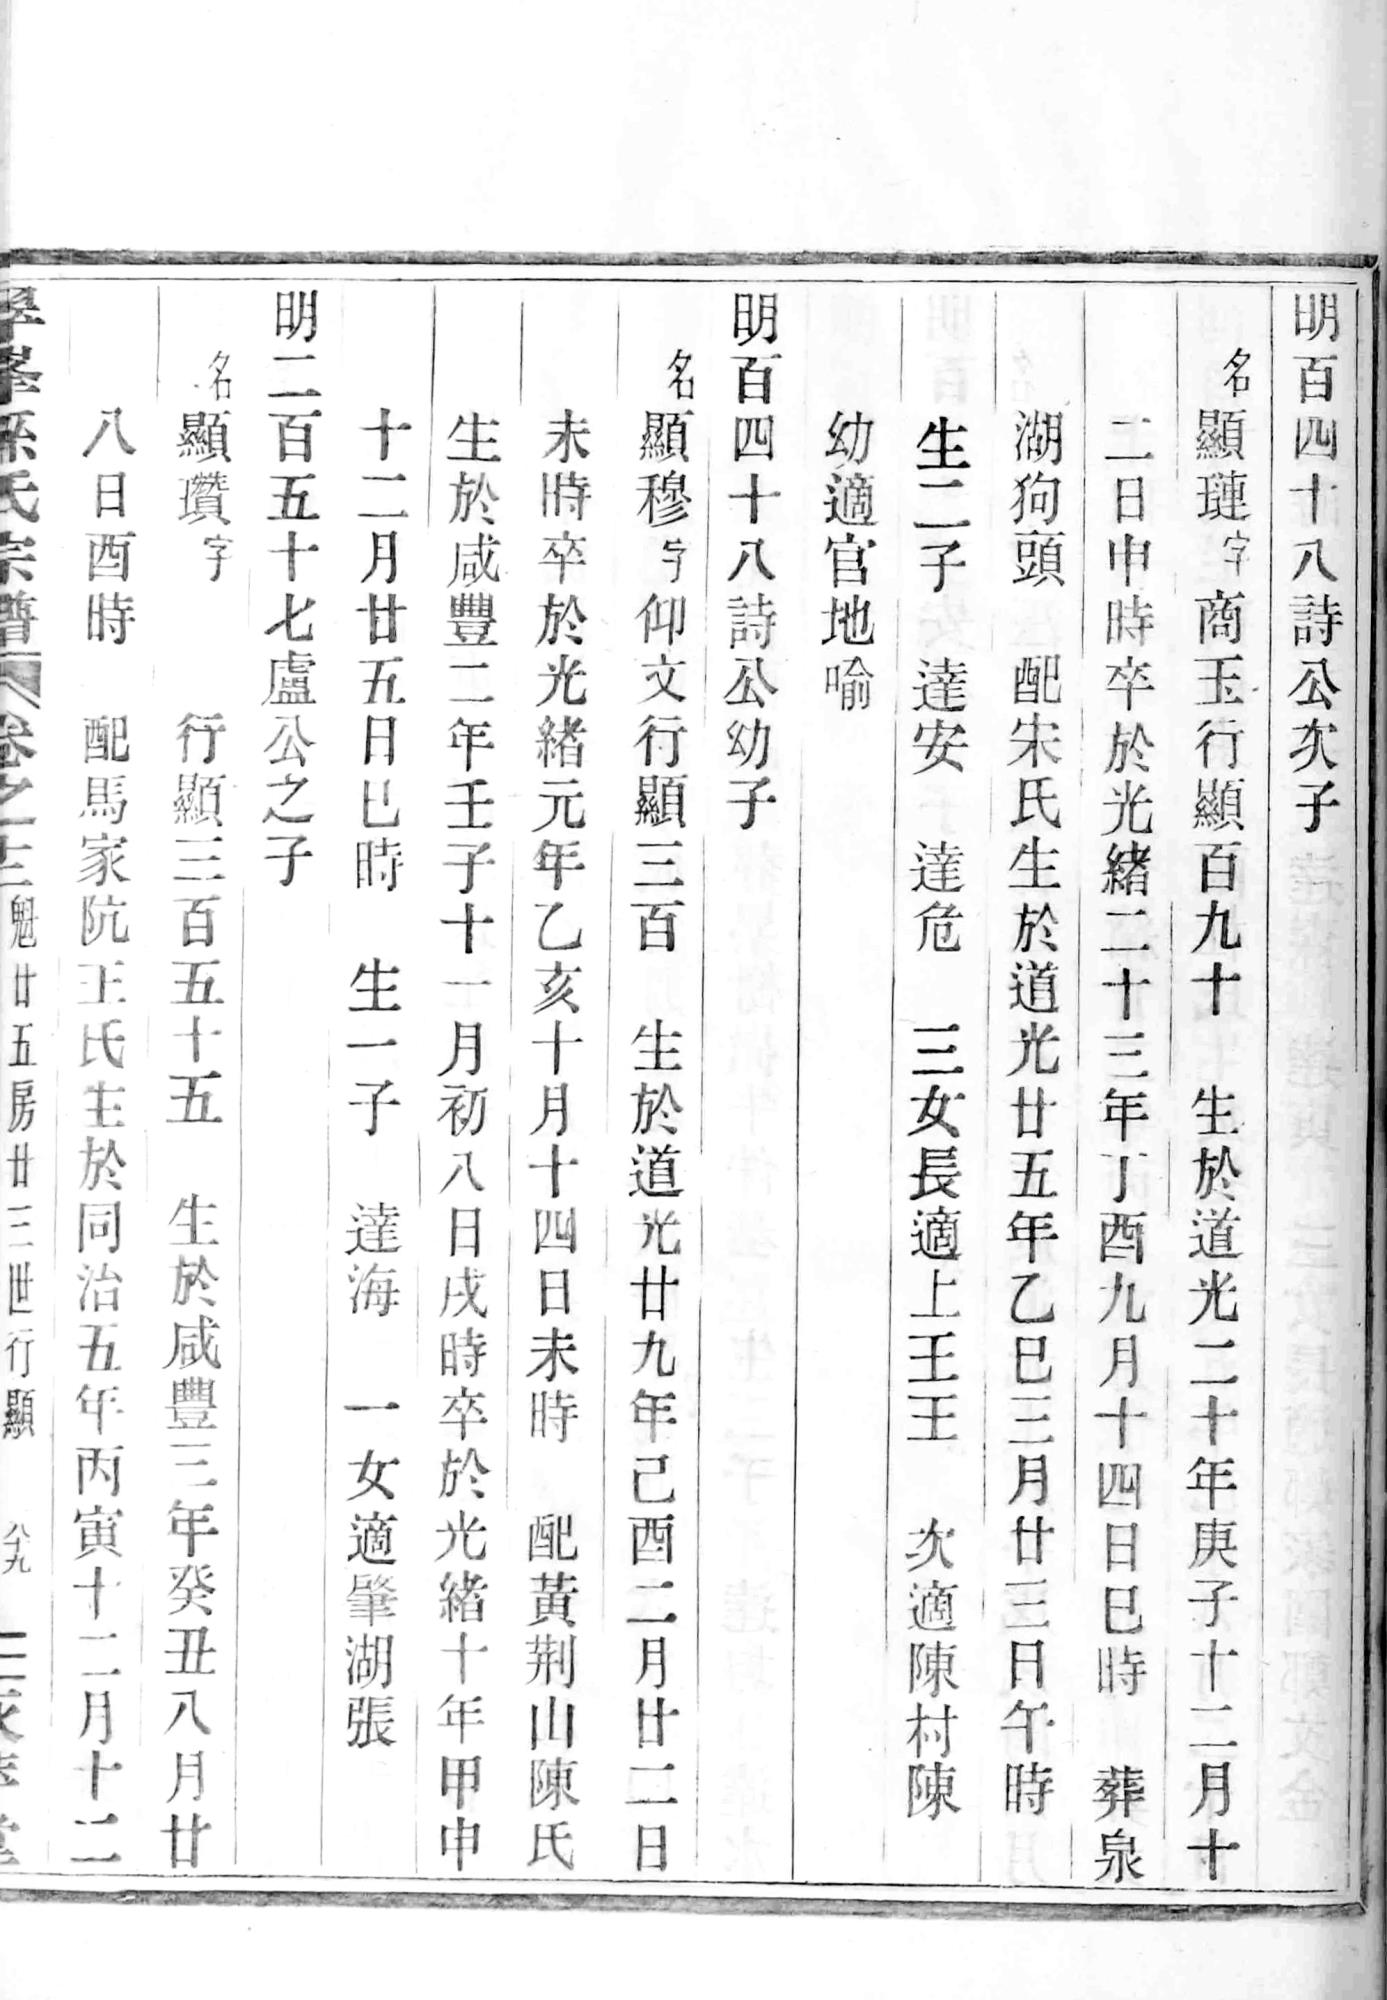 明百四十八詩公次子
名顯璉字商玉行顯百九十　生於道光二十年庚子十二月十
二日申時卒於光緒二十三年丁酉九月十四日巳時　葬泉
湖狗頭　配宋氏生於道光廿五年乙巳三月廿三日午時
生二子　達安　達危　三女長適上王王　次適陳村陳
幼適官地喻
明百四十八詩公幼子
名顯穆字仰文行顯三百　生於道光廿九年己酉二月廿二日
未時卒於光緒元年乙亥十月十四日未時　配黃荆山陳氏
生於咸豐二年壬子十一月初八日戌時卒於光緒十年甲申
十二月廿五日巳時　生一子　達海　一女適肇湖張
明二百五十七盧公之子
名顯瓚字　行顯三百五十五　生於咸豐三年癸丑八月廿
八日酉時　配馬家阬王氏生於同治五年丙寅十二月十二
孫氏宗譜　卷之十三魁廿五房廿三世行顯　八十九